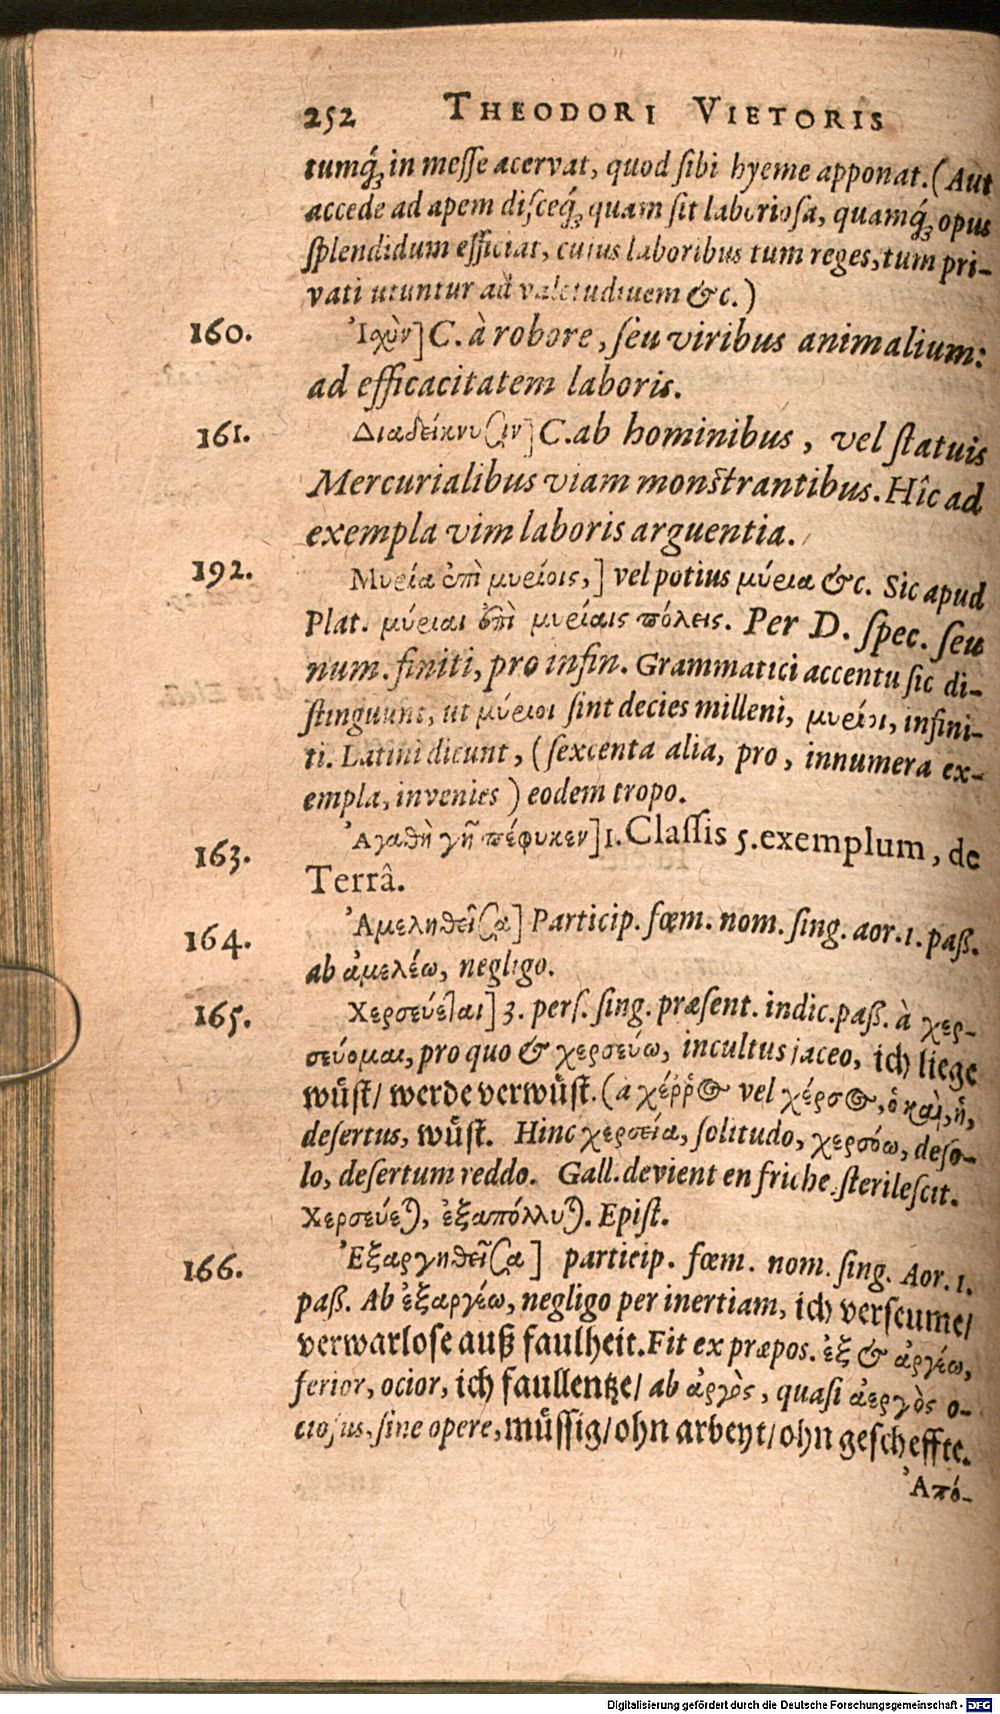 252 THEODORI VIETORIS
tumq́ꝫ in messe acervat, quod sibi hyeme apponat. (Aut
accede ad apem disceq́ꝫ quam sit laboriosa, quamq́ꝫ opus
splendidum efficiat, cujus laboribus tum reges, tum pri-
vati utuntur ad valetudinem &c.)
160. Ἰχὺν] C. à robore, seu viribus animalium:
ad efficacitatem laboris.
161. Διαδείκνυσιν] C. ab hominibus, vel statuis
Mercurialibus viam monstrantibus. Hîc ad
exempla vim laboris arguentia.
192. Μυρία ἐπὶ μυρίοις,] vel potius μύρια &c. Sic apud
Plat. μύριαι ἐπὶ μυρίαις πόλεις. Per D. spec. seu
num. finiti, pro infin. Grammatici accentu sic di-
stinguunt, ut μύριοι sint decies milleni, μυρίοι, infini-
ti. Latini dicunt, (sexcenta alia, pro, innumera ex-
empla, invenies) eodem tropo.
163. Ἀγαθὴ γῆ πέφυκεν] 1. Classis 5. exemplum, de
Terrâ.
164. Ἀμεληθεῖσα] Particip. fœm. nom. sing. aor. 1. paß.
ab ἀμελέω, negligo.
165. Χερσεύεται] 3. pers. sing. præsent. indic. paß. à χερ-
σεύομαι, pro quo & χερσεύω, incultus jaceo, ich liege
wuͤst/ werde verwuͤst. (à χέῤῥος vel χέρσος, ὁ καὶ, ἡ,
desertus, wuͤst. Hinc χερσεία, solitudo, χερσόω, deso-
lo, desertum reddo. Gall. devient en friche. sterilescit.
Χερσεύεται, ἐξαπόλλυται. Epist.
166. Ἐξαργηθεῖσα] particip. fœm. nom. sing. Aor. 1.
paß. Ab ἐξαργέω, negligo per inertiam, ich verseume/
verwarlose auß faulheit. Fit ex præpos. ἐξ & ἀργέω,
ferior, ocior, ich faullentze/ ab ἀργὸς, quasi ἀεργὸς o-
ciosus, sine opere, muͤssig/ ohn arbeyt/ ohn gescheffte.
Ἀπό-
Digitalisierung gefördert durch die Deutsche Forschungsgemeinschaft - DFG